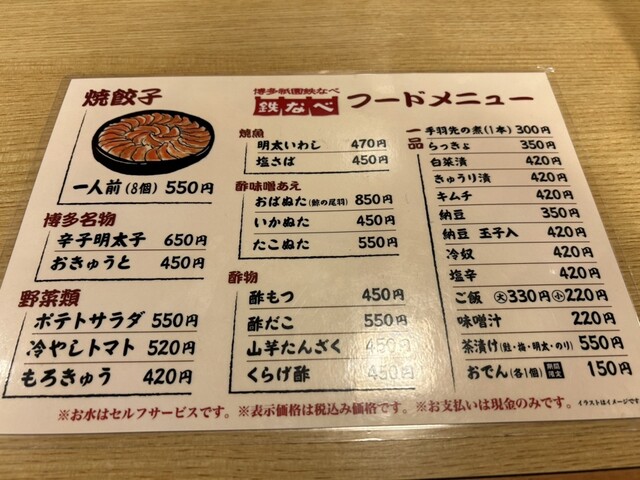 博多祇園鉄なべ
鉄なべ フードメニュー
焼餃子
一人前(8個) 550円
博多名物
辛子明太子 650円
おきゅうと 450円
野菜類
ポテトサラダ 550円
冷やしトマト 520円
もろきゅう 420円
焼魚
明太いわし 470円
塩さば 450円
酢味噌あえ
おばぬた(鯨の尾羽) 850円
いかぬた 450円
たこぬた 550円
酢物
酢もつ 450円
酢だこ 550円
山芋たんざく 450円
くらげ酢 450円
一品
手羽先の煮(1本) 300円
らっきょ 350円
白菜漬 420円
きゅうり漬 420円
キムチ 420円
納豆 350円
納豆 玉子入 420円
冷奴 420円
塩辛 420円
ご飯 大330円 小220円
味噌汁 220円
茶漬け(鮭・梅・明太・のり) 550円
おでん(各1個) 期間限定 150円
※お水はセルフサービスです。※表示価格は税込み価格です。※お支払いは現金のみです。 イラストはイメージです